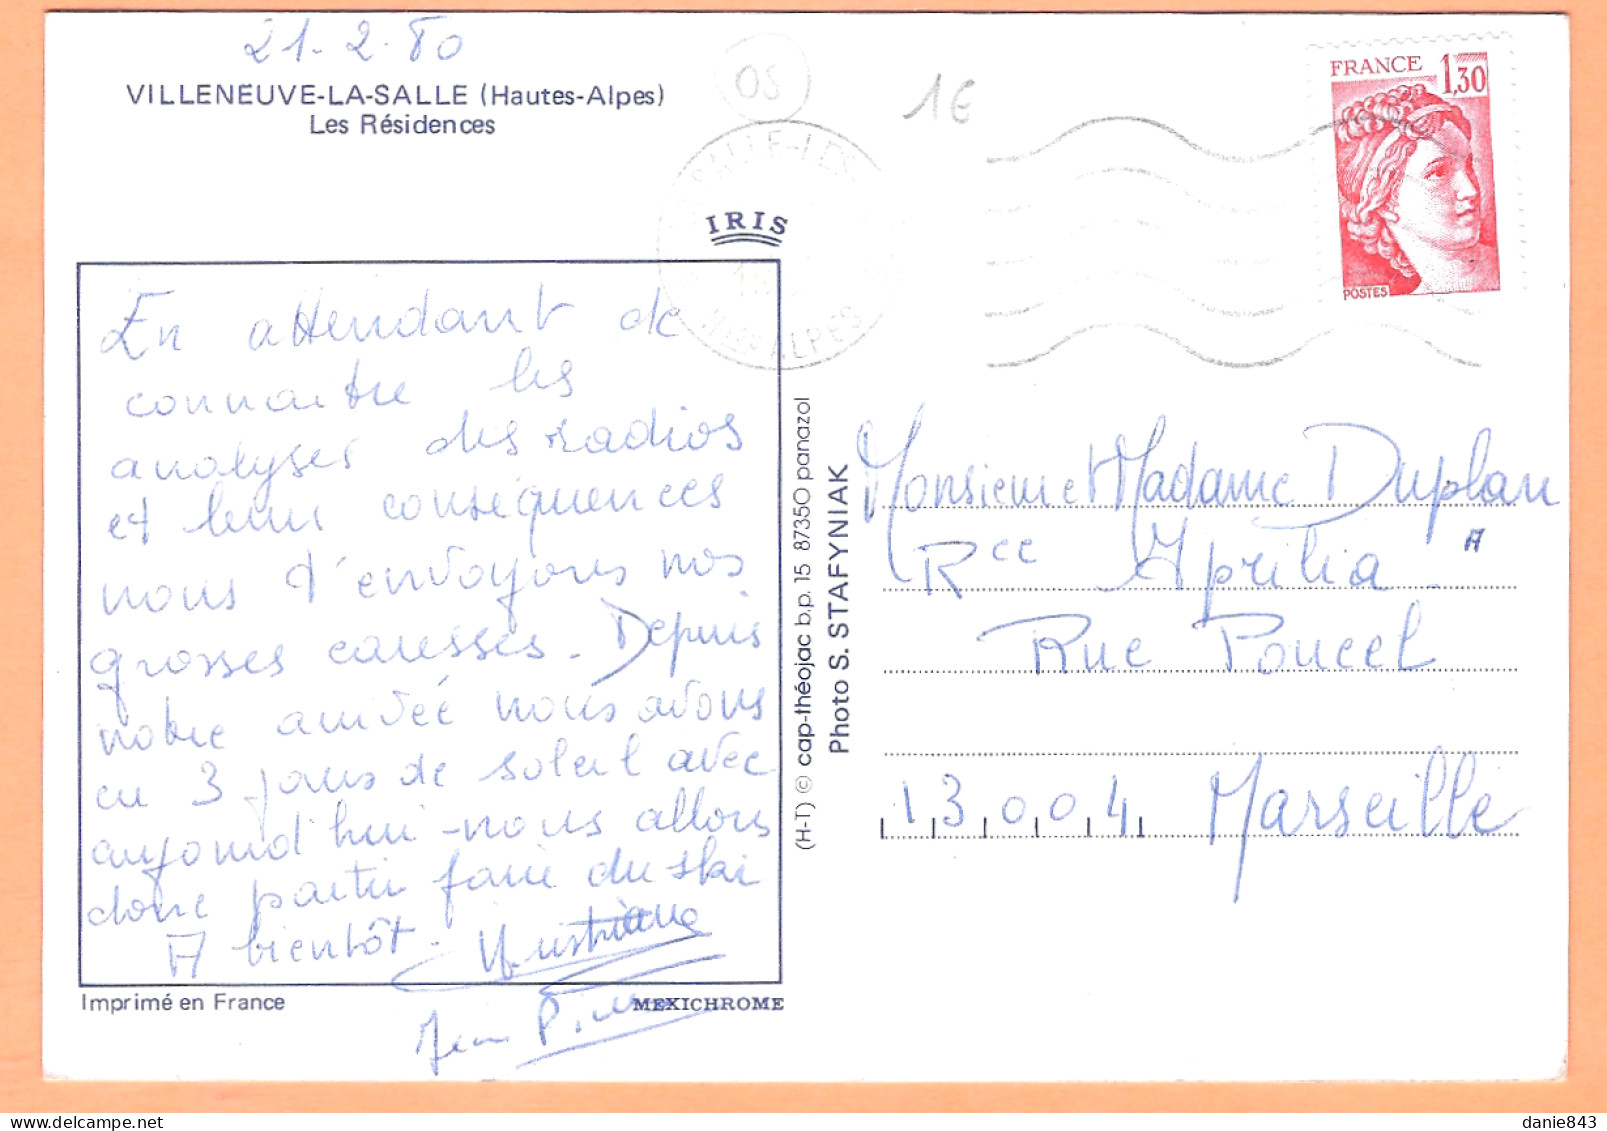 21-2-80
VILLENEUVE-LA-SALLE (Hautes-Alpes)
Les Résidences
05
1€
SALLE-LES
HTES ALPES
IRIS
FRANCE 1,30
POSTES
En attendant de
connaitre les
analyses des radios
et leur conséquences
nous t'envoyons nos
grosses caresses. Depuis
notre arrivée nous avons
eu 3 jours de soleil avec
aujourd'hui - nous allons
donc partir faire du ski
A bientôt.
Christiane
Jean P.
Imprimé en France
MEXICHROME
(H-T) © cap-théojac b.p. 15 87350 panazol
Photo S. STAFYNIAK
Monsieur et Madame Duplan
A
Rce Aprilia
Rue Poucel
13004 Marseille
danie843